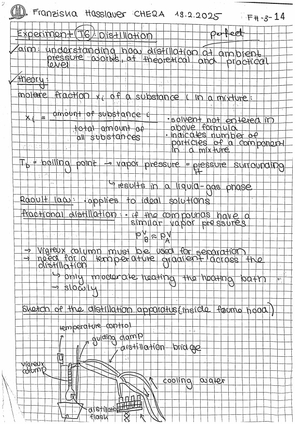 Franziska Hasslauer CHE2A 13.2.2025 FH-S-14
Experiment T6 Distillation perfect
aim: understanding how distillation at ambient
pressure works, at theoretical and practical
level
theory:
molare fraction xi of a substance i in a mixture:
xi = amount of substance i
total amount of
all substances
• solvent not entered in
above formula
• indicates number of
particles of a component
in a mixture
Tb = boiling point → vapor pressure = pressure surrounding
it
↳ results in a liquid-gas phase
Raoult law: • applies to ideal solutions
fractional distillation: • if the compounds have a
similar vapor pressures
→ Vigreux column must be used for separation
→ need for a temperature gradient across the
distillation
↳ only moderate heating the heating bath
↳ slowly
Sketch of the distillation apparatus (inside fume hood)
temperature control
guiding clamp
distillation bridge
vigreux
column
cooling water
distillation
flask